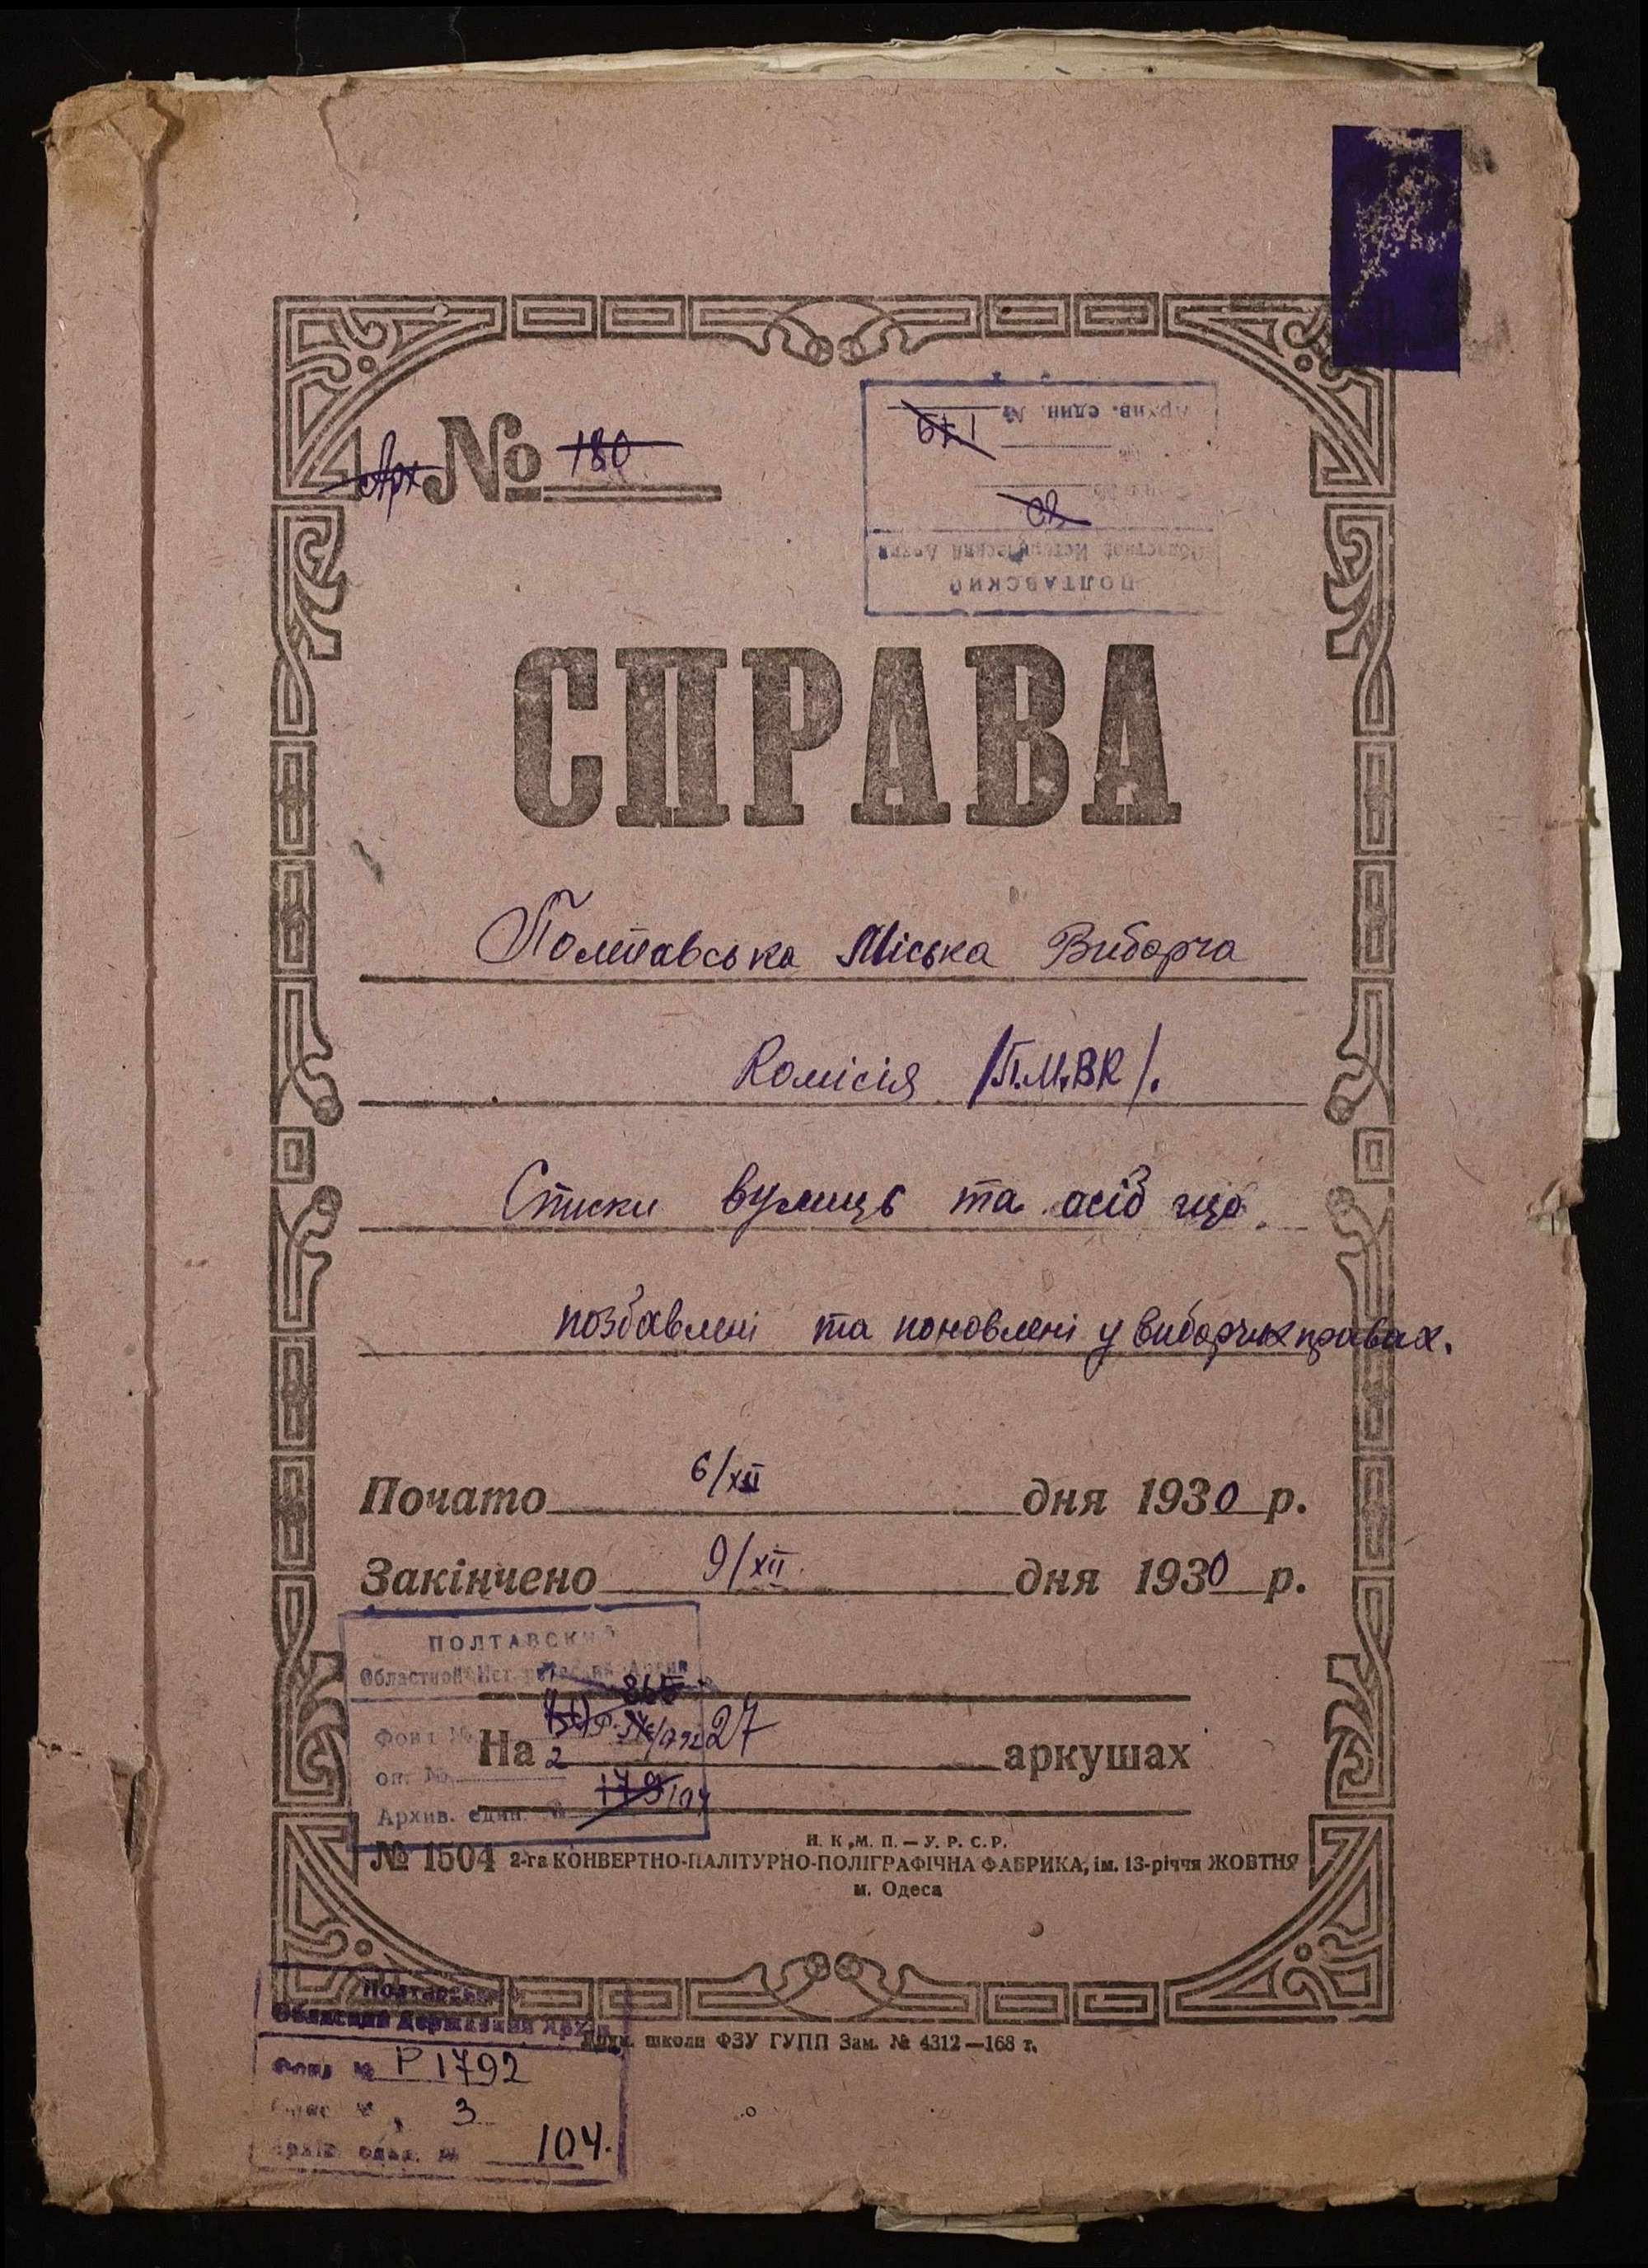 Арх № 180
Архив. един. № 671
82
Областной Исторический Архив
ПОЛТАВСКИЙ
СПРАВА
Полтавська Міська Виборча
Комісія /П.М.ВК/.
Списки вулиць та осіб що
позбавлені та поновлені у виборчих правах.
Почато 6/XII дня 1930 р.
Закінчено 9/XII. дня 1930 р.
ПОЛТАВСКИЙ
Областной Исторический Архив
865
Фонд №
На 27 аркушах
оп. № 2
Архив. един. № 179 104
Н. К. М. П. — У. Р. С. Р.
№ 1504 2-га КОНВЕРТНО-ПАЛІТУРНО-ПОЛІГРАФІЧНА ФАБРИКА, ім. 13-річчя ЖОВТНЯ
м. Одеса
Полтавський
Обласний Державний Архів
школи ФЗУ ГУПП Зам. № 4312—168 т.
Фонд № Р 1792
Опис № 3
Архів. один. № 104.